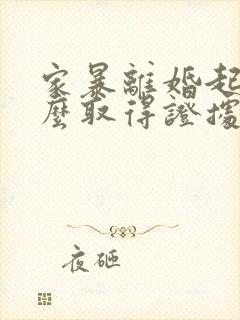 家暴離婚起
麼取得證據
夜砸